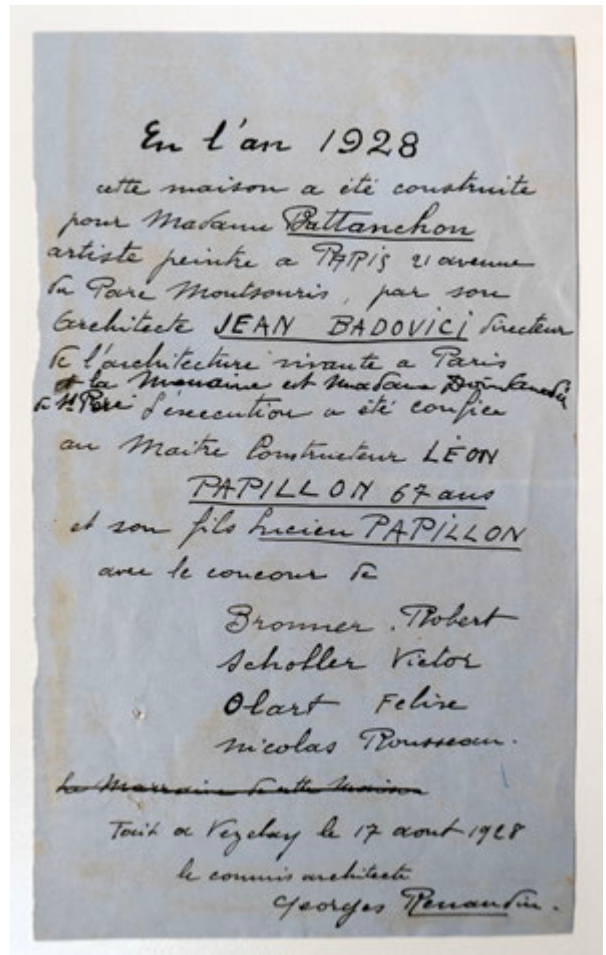 En l'an 1928
cette maison a été construite
pour Madame Battanchon
artiste peintre a PARIS 21 avenue
du Parc Montsouris, par son
Architecte JEAN BADOVICI directeur
de l'architecture vivante a Paris
la et Madame
de St Peré l'execution a été confiée
au Maitre Constructeur LÉON
PAPILLON 67 ans
et son fils Lucien PAPILLON
avec le concour de
Bronner. Robert
Scholler Victor
Olart Felixe
Nicolas Rousseau.
La Marraine de cette Maison
Fait a Vezelay le 17 aout 1928
le commis architecte
Georges Renaudin.